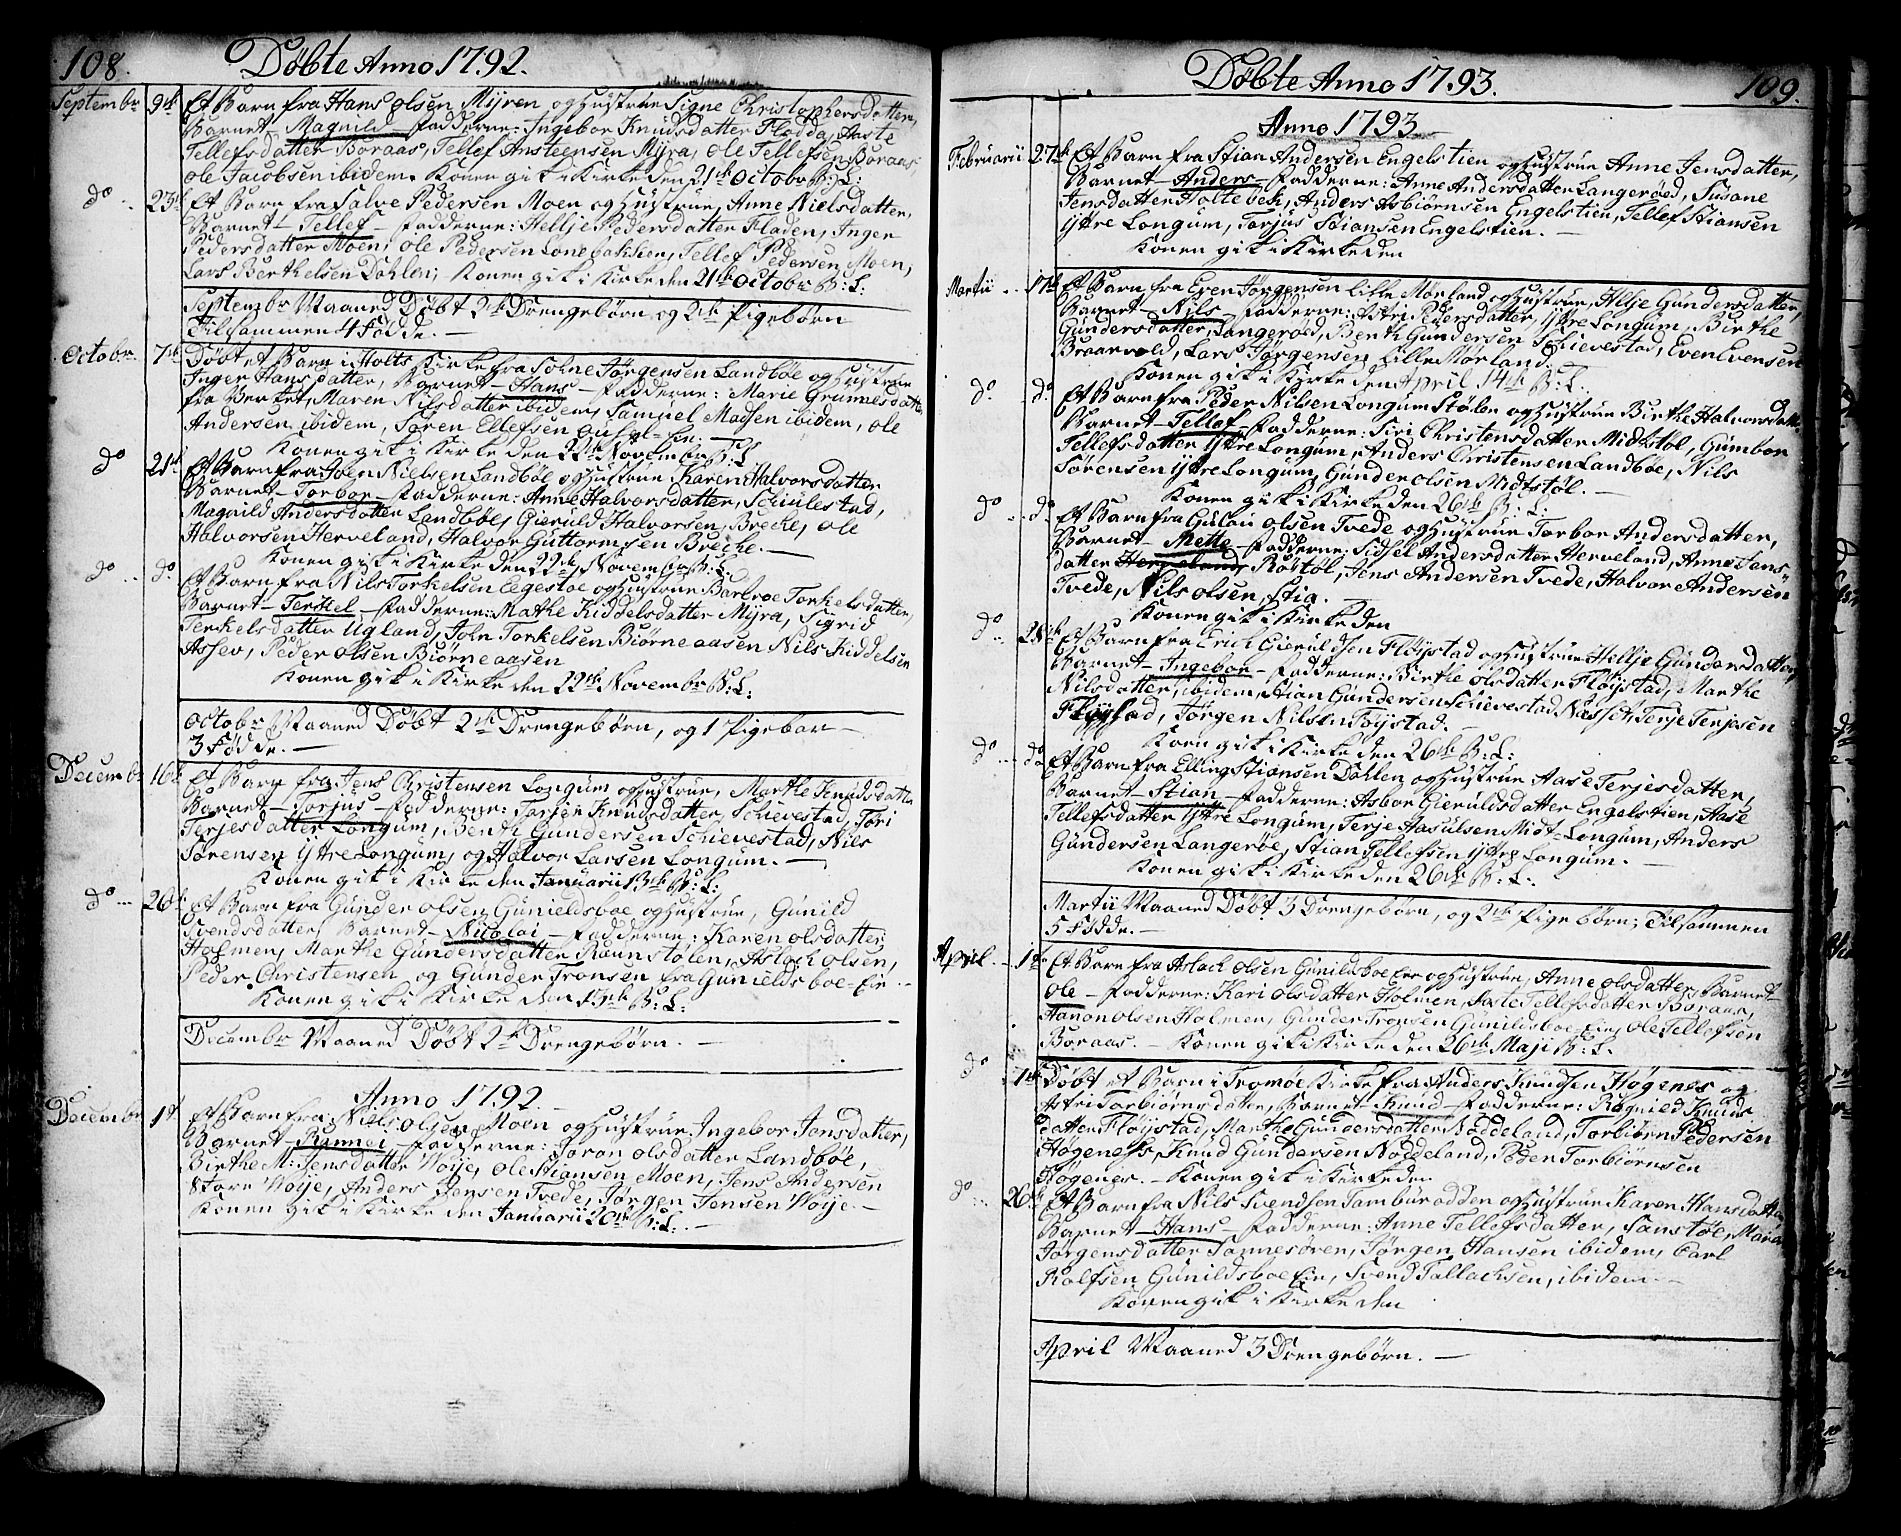 108.
Døbte Anno 1792.
Septembr 9de Et Barn fra Hans Olsen Myren og Hustrue Signe Christophersdatter,
Barnet – Magnild – Fadderne: Ingebor Knudsdatter Flodda, Aaste
Tellefsdatter Boraas, Tellef Ansteensen Myra, Ole Tellefsen Boraas,
Ole Jacobsen ibidem. Konen gik i Kirke den 21de Octobr B: L:
do 23de Et Barn fra Salve Pedersen Moen og Hustrue Anne Nielsdatter,
Barnet – Tellef – Fadderne: Hellje Pedersdatter Fladen, Inger
Pedersdatter Moen, Ole Pedersen Lonebakken, Tellef Pedersen Moen,
Lars Berthelsen Dahlen; Konen gik i Kirke den 21de Octobr B: L:
Septembr Maaned Døbt 2de Drengebørn og 2de Pigebørn
Tilsammen 4 Fødde. –
Octobr 7de Døbt et Barn i Holts Kirke fra John Jørgensen Landbøe og Hustrue
Inger Hansdatter, Barnet – Hans – Fadderne: Marie Grumnesdatter
fra Berket, Maren Nilsdatter ibidem, Samuel Madsen ibidem, Ole
Andersen ibidem, Søren Ellefsen
Konen gik i Kirke den 22de Novembr B: L
do 21de Et Barn fra John Nielsen Landbøe og Hustrue Karen Halvorsdatter
Barnet – Torbor – Fadderne: Anne Halvorsdatter, Schiulestad,
Magnild Andersdatter Landbøe, Gieruld Halvorsen, Breche, Ole
Halvorsen Herveland, Halvor Guttormsen Breche. –
Konen gik i Kirke den 22de Novembr B: L:
do do Et Barn fra Nils Torkelsen Egeboe og Hustrue Barbroe Torkelsdatter,
Barnet – Terkel – Fadderne: Mathe Kiddelsdatter Myra, Sigrid
Terkelsdatter Ugland, John Torkelsen Biørneaasen Nils Kiddelsen
Assev, Peder Olsen Biørneaasen
Konen gik i Kirke den 22de Novembr B: L:
Octobr Maaned Døbt 2de Drengebørn, og 1 Pigebar –
3 Fødde. –
Decembr 16de Et Barn fra Jens Christensen Longum og Hustrue, Marthe Knudsdatter
Barnet – Torjus – Fadderne: Torjer Knudsdatter, Schievestad, Tøri
Terjesdatter Longum, Benth Gundersen Schievestad, Nils
Sørensen Yttre Longum, og Halvor Larsen Longum. –
Konen gik i Kirke den Januarii 13de B: L:
do 26de Et Barn fra Gunder Olsen Gunieldsboe og Hustrue, Gunild
Svendsdatter, Barnet – Nicolai – Fadderne: Karen Olsdatter
Holmen, Marthe Gundersdatter Rønnstølen, Aslach Olsen,
Peder Christensen og Gunder Tronsen fra Gunieldsboe-Eie.
Konen gik i Kirke den 13de B: L:
Decembr Maaned Døbt 2de Drengebørn. –
Anno 1792
Decembr 1de Et Barn fra Niels Olsen Moen og Hustrue Ingebor Jensdatter,
Barnet – Rannei – Fadderne: Søron Olsdatter Landbøe,
Birthe M: Jensdatter Woije, Ole Stiansen Moen, Jens Andersen
Store Woije, Anders Jensen Tvede, Jørgen Jensen Woije –
Konen gik i Kirke den Januarii 20de B: L: –
Døbte Anno 1793.
109.
Anno 1793
Februarii 27de Et Barn fra Stian Andersen Engelstien og Hustrue Anne Jensdatter,
Barnet – Anders – Fadderne: Anne Andersdatter Langerøed, Susane
Jensdatter Holtebek, Anders Asbiørnsen Engelstien, Tellef Stiansen
Yttre Longum, Torjus Stiansen Engelstien. –
Konen gik i Kirke den
Martii 17de Et Barn fra Even Jørgensen Lille Mørland og Hustrue, Helje Gundersdatter,
Barnet – Nils – Fadderne: Astri Pedersdatter, Yttre Longum, Birthe
Gundersdatter, Langerød, Benth Gundersen Schievestad, Even Evensen
Braarvold, Lars Jørgensen Lille Mørland.
Konen gik i Kirke den April 14de B: L.
do. do. Et Barn fra Peder Nilsen Longum Stølen og Hustrue Birthe Halvorsdatter
Barnet – Tellef – Fadderne: Siri Christensdatter Midtstøl, Gumbor
Tellefsdatter Yttre Longum, Anders Christensen Landbøe, Nils
Sørensen Yttre Longum, Gunder Olsen Midtstøl. –
Konen gik i Kirke den 26de B: L:
do do. Et Barn fra Gulou Olsen Tvede og Hustrue Torbor Andersdatter,
Barnet – Mette – Fadderne: Sidsel Andersdatter Herveland, Anne Jens-
datter Herveland, Røstøl, Jens Andersen Tvede, Halvor Andersen
Tvede, Nils Olsen Stia.
Konen gik i Kirke den
do 25de Et Barn fra Erich Gieruldsen Fløystad og Hustrue Hellje Gundersdatter,
Barnet – Ingebor – Fadderne: Birthe Olsdatter Fløystad, Marthe
Nilsdatter, ibidem, Stian Gundersen Schievestad Nasset, Terje Terjesen
Fløystad, Jørgen Nilsen Fløystad.
Konen gik i Kirke den 26de B: L:
do do Et Barn fra Elling Stiansen Dahlen og Hustrue Aase Terjesdatter,
Barnet – Stian – Fadderne: Asbor Gieruldsdatter Engelstien, Aase
Tellefsdatter Yttre Longum, Terje Aasulsen Midt-Longum, Anders
Gundersen Langerøe, Stian Tellefsen Yttre Longum. –
Konen gik i Kirke den 26de B: L:
Martii Maaned Døbt 3 Drengebørn, og 2de Pigebørn; Tilsammen
5 Fødde. –
April. 1de Et Barn fra Aslach Olsen Gunildsboe Eie og Hustrue, Anne Olsdatter, Barnet
Ole – Fadderne: Kari Olsdatter Holmen, Aaste Tellefsdatter Boraas,
Aanon Olsen Holmen, Gunder Tronsen Gunildsboe Eie, Ole Tellefsen
Boraas. – Konen gik i Kirke den 26de Maji B: L:
do 1de Døbt et Barn i Tromøe Kirke fra Anders Knudsen Høgenes og
Astri Torbiørnsdatter, Barnet – Knud – Fadderne: Ragnild Knuds
datter Fløystad, Marthe Gundersdatter Noddeland, Torbiørn Pedersen
Høgenes, Knud Gundersen Noddeland, Peder Torbiørnsen
Høgenes. – Konen gik i Kirke den
do 26de Et Barn fra Nils Svendsen Tamburodden og Hustrue Karen Hansdatter
Barnet – Hans – Fadderne: Anne Tellefsdatter, Sanstøl, Maren
Jørgensdatter Sannesøren, Jørgen Hansen ibidem, Carl
Rolfsen Gunildsboe Eie, Svend Tallachsen, ibidem. –
Konen gik i Kirke den
April Maaned 3 Drengebørn. –